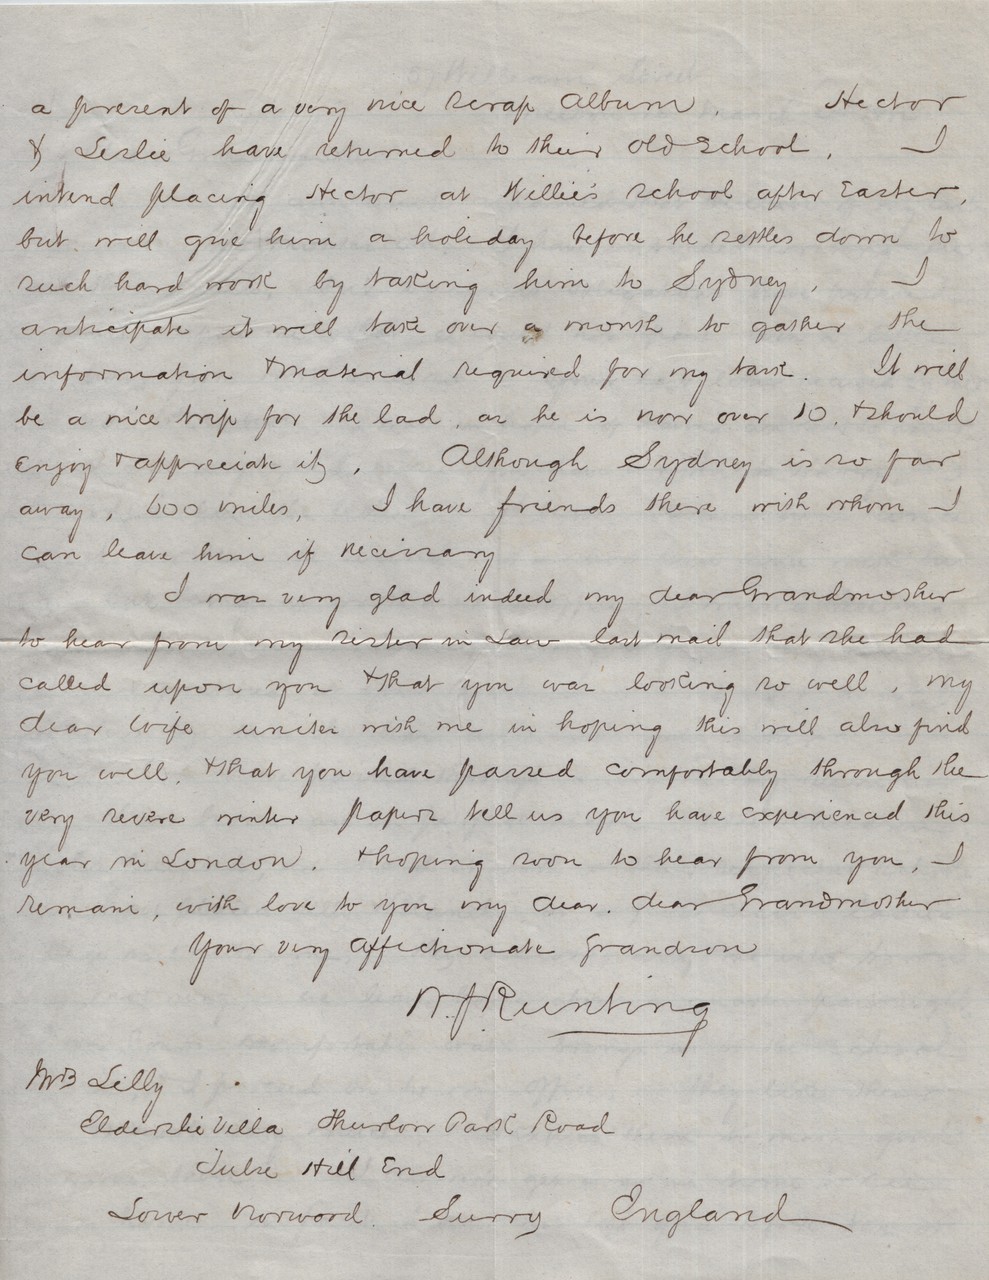 a present of a very nice Scrap Album. Hector
& Leslie have returned to their Old School. I
intend placing Hector at Willie's School after Easter,
but will give him a holiday before he settles down to
such hard work by taking him to Sydney. I
anticipate it will take over a month to gather the
information & material required for my task. It will
be a nice trip for the lad, as he is now over 10, & should
enjoy & appreciate it. Although Sydney is so far
away, 600 miles, I have friends there with whom I
can leave him if necessary
I was very glad indeed my dear Grandmother
to hear from my sister in Law last mail that she had
called upon you & that you was looking so well, my
dear Wife unites with me in hoping this will also find
you well, & that you have passed comfortably through the
very severe winter papers tell us you have experienced this
year in London. & hoping soon to hear from you, I
remain, with love to you my dear, dear Grandmother
Your very affectionate Grandson
W. J. Runting
Mrs Lilly
Elderslie Villa Thurlow Park Road
Tulse Hill End
Lower Norwood Surry England